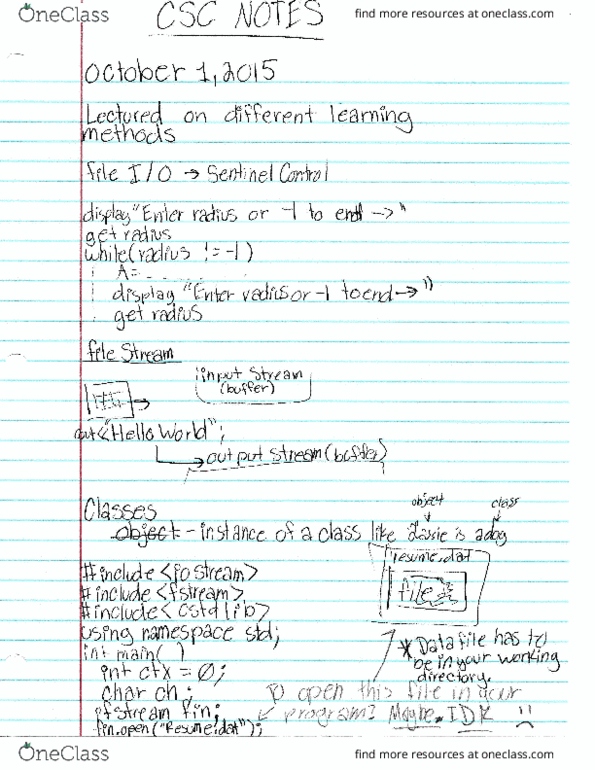 OneClass
find more resources at oneclass.com
CSC NOTES
October 1, 2015
Lectured on different learning
methods
file I/O → Sentinel Control
display "Enter radius or -1 to end -->"
get radius
while(radius != -1)
A= _ . _ . _ . _ .
display "Enter radius or -1 to end-->"
get radius
file Stream
input Stream
(buffer)
cout<<"Hello World";
output stream (buffer)
Classes
object
class
object - instance of a class like Lassie is a dog
resume.dat
file
#include <iostream>
#include <fstream>
#include <cstdlib>
using namespace std;
int main( )
int ctx = 0;
char ch;
ifstream fin;
fin.open("Resume.dat");
* Data file has to
be in your working
directory.
to open this file in our
program? Maybe. IDK :(
OneClass
find more resources at oneclass.com